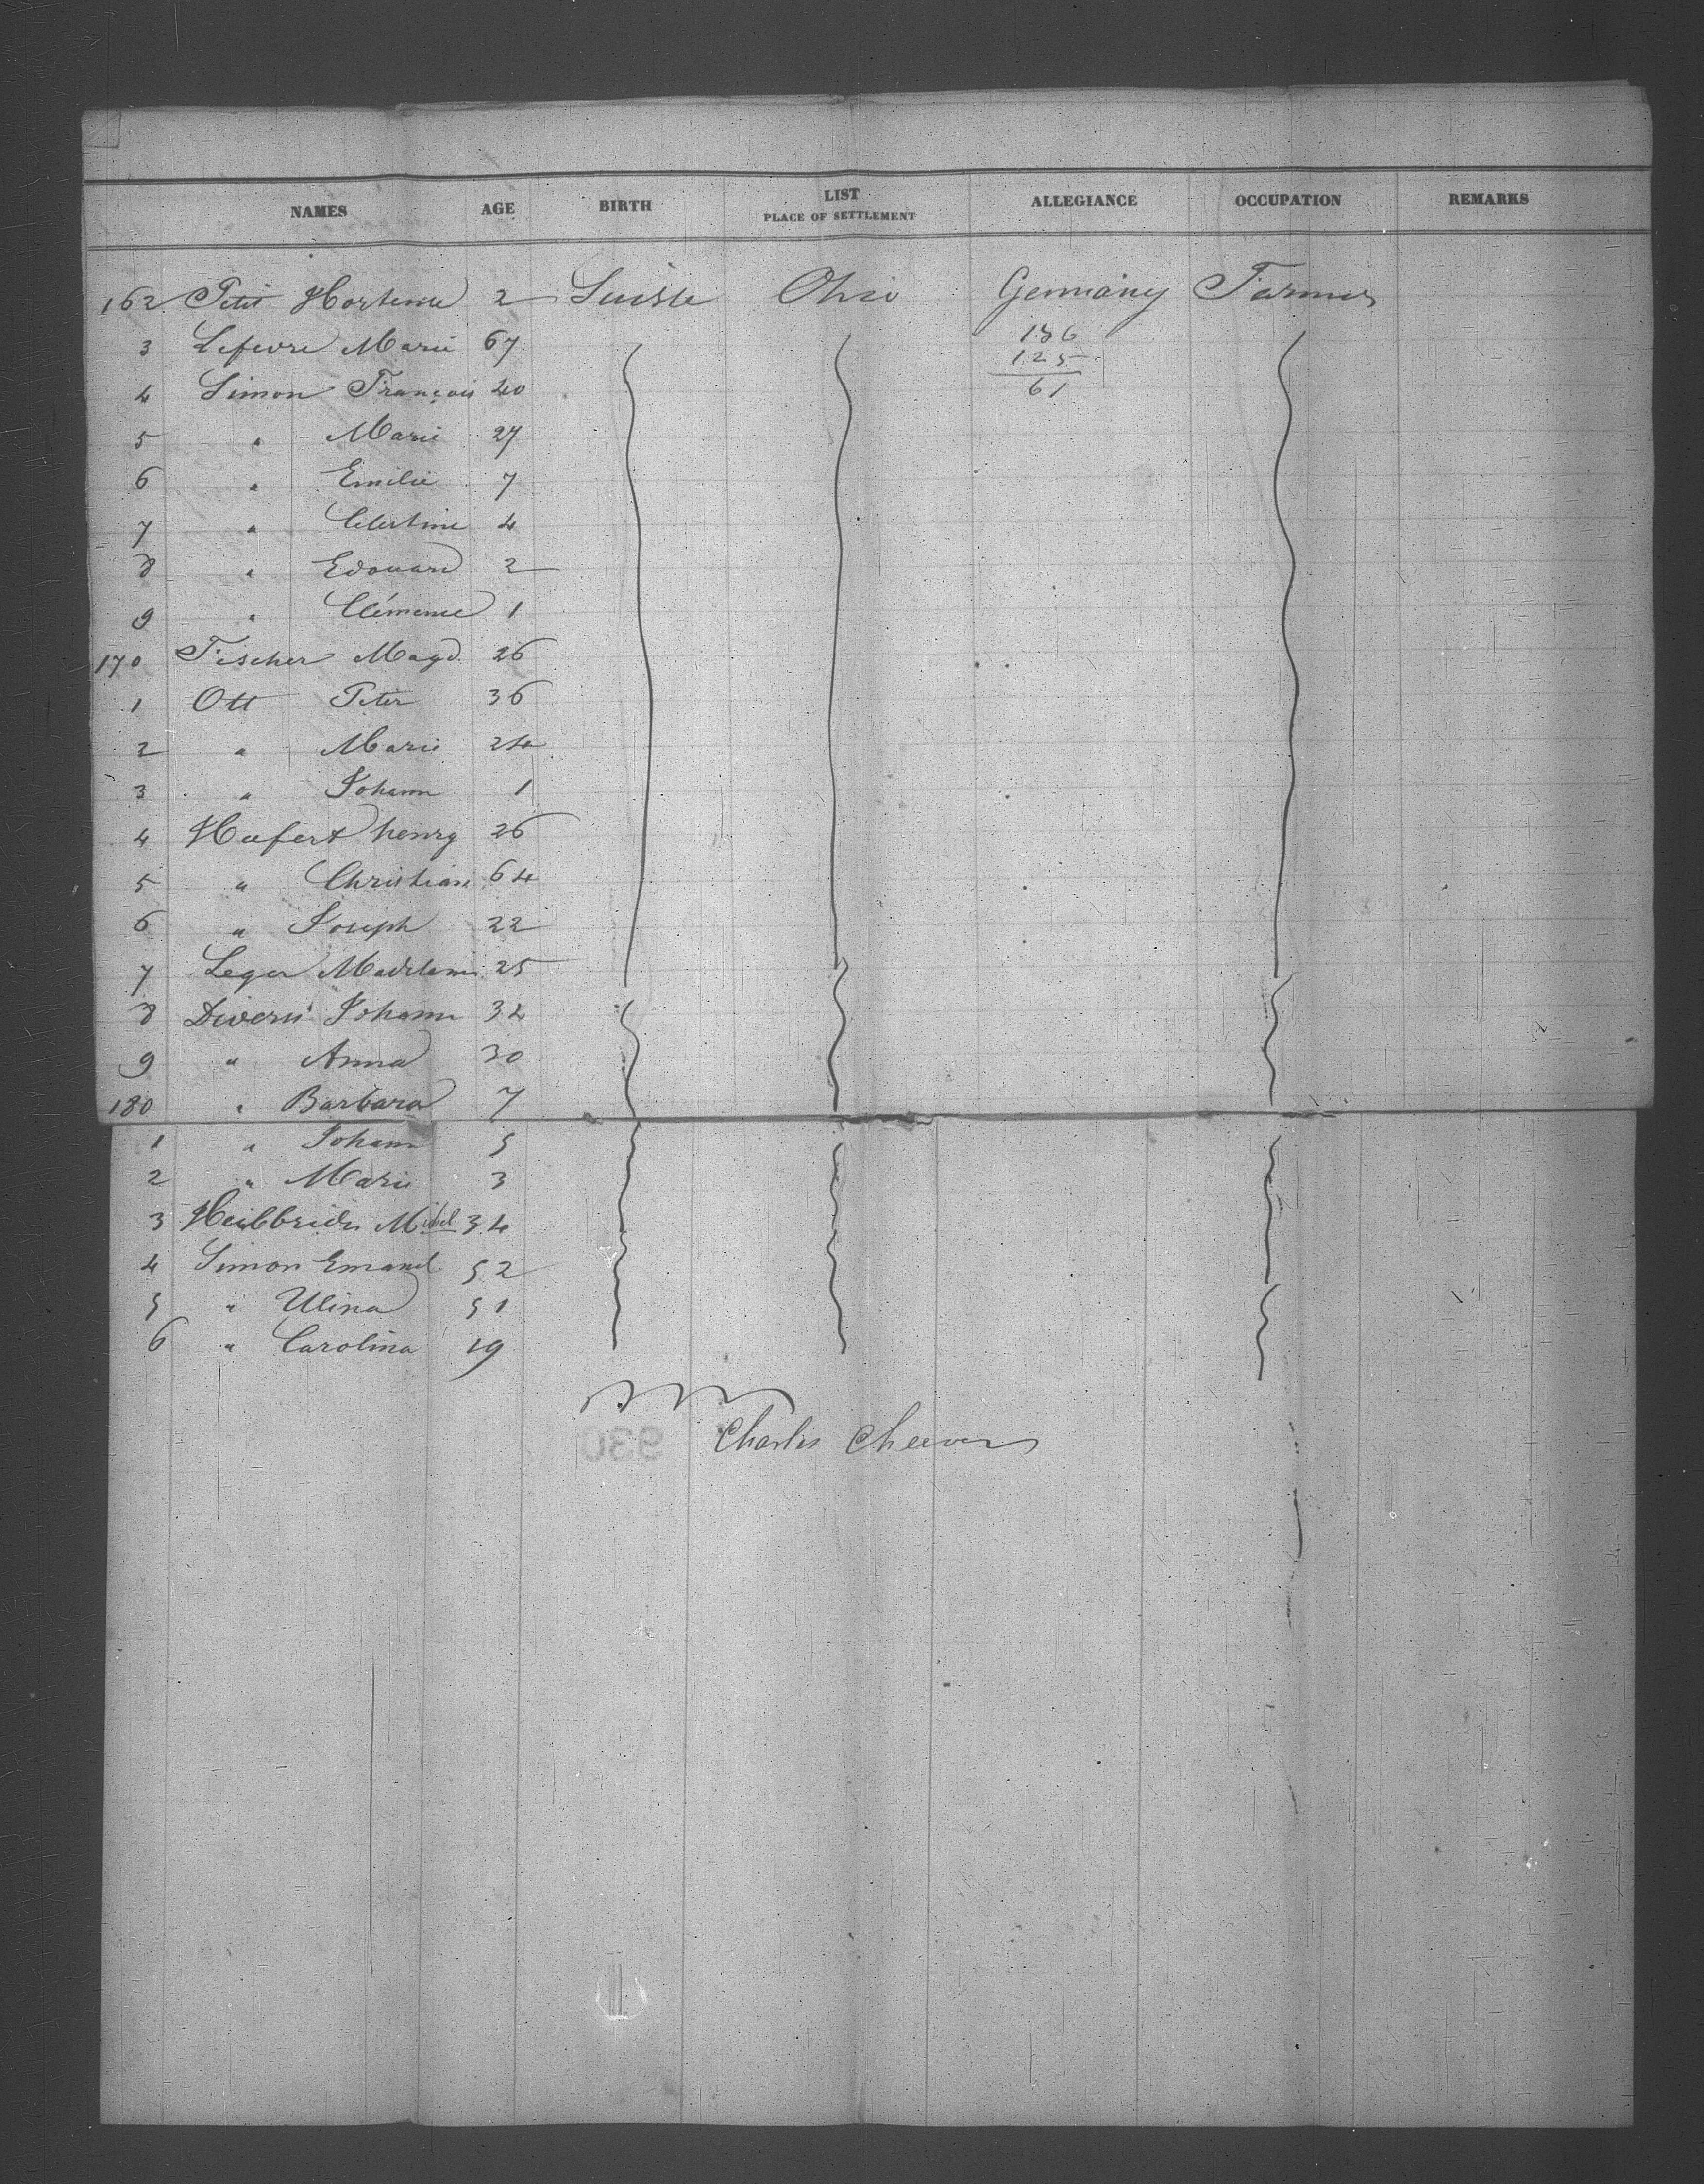 NAMES AGE BIRTH LIST PLACE OF SETTLEMENT ALLEGIANCE OCCUPATION REMARKS
162 Petit Hortense 2 Suisse Ohio Germany Farmer
3 Lefevre Marie 67
186
125
61
4 Simon François 40
5 " Marie 27
6 " Emilie 7
7 " Celestine 4
8 " Edouard 2
9 " Clémence 1
170 Fischer Magd. 26
1 Ott Peter 36
2 " Marie 24
3 " Johann 1
4 Huefert henry 26
5 " Christian 64
6 " Joseph 22
7 Leger Madeleine 25
8 Diversi Johann 32
9 " Anna 30
180 " Barbara 7
1 " Johann 5
2 " Marie 3
3 Heilbrider Michel 34
4 Simon Emanuel 52
5 " Ulina 51
6 " Carolina 19
Charles Cheevers